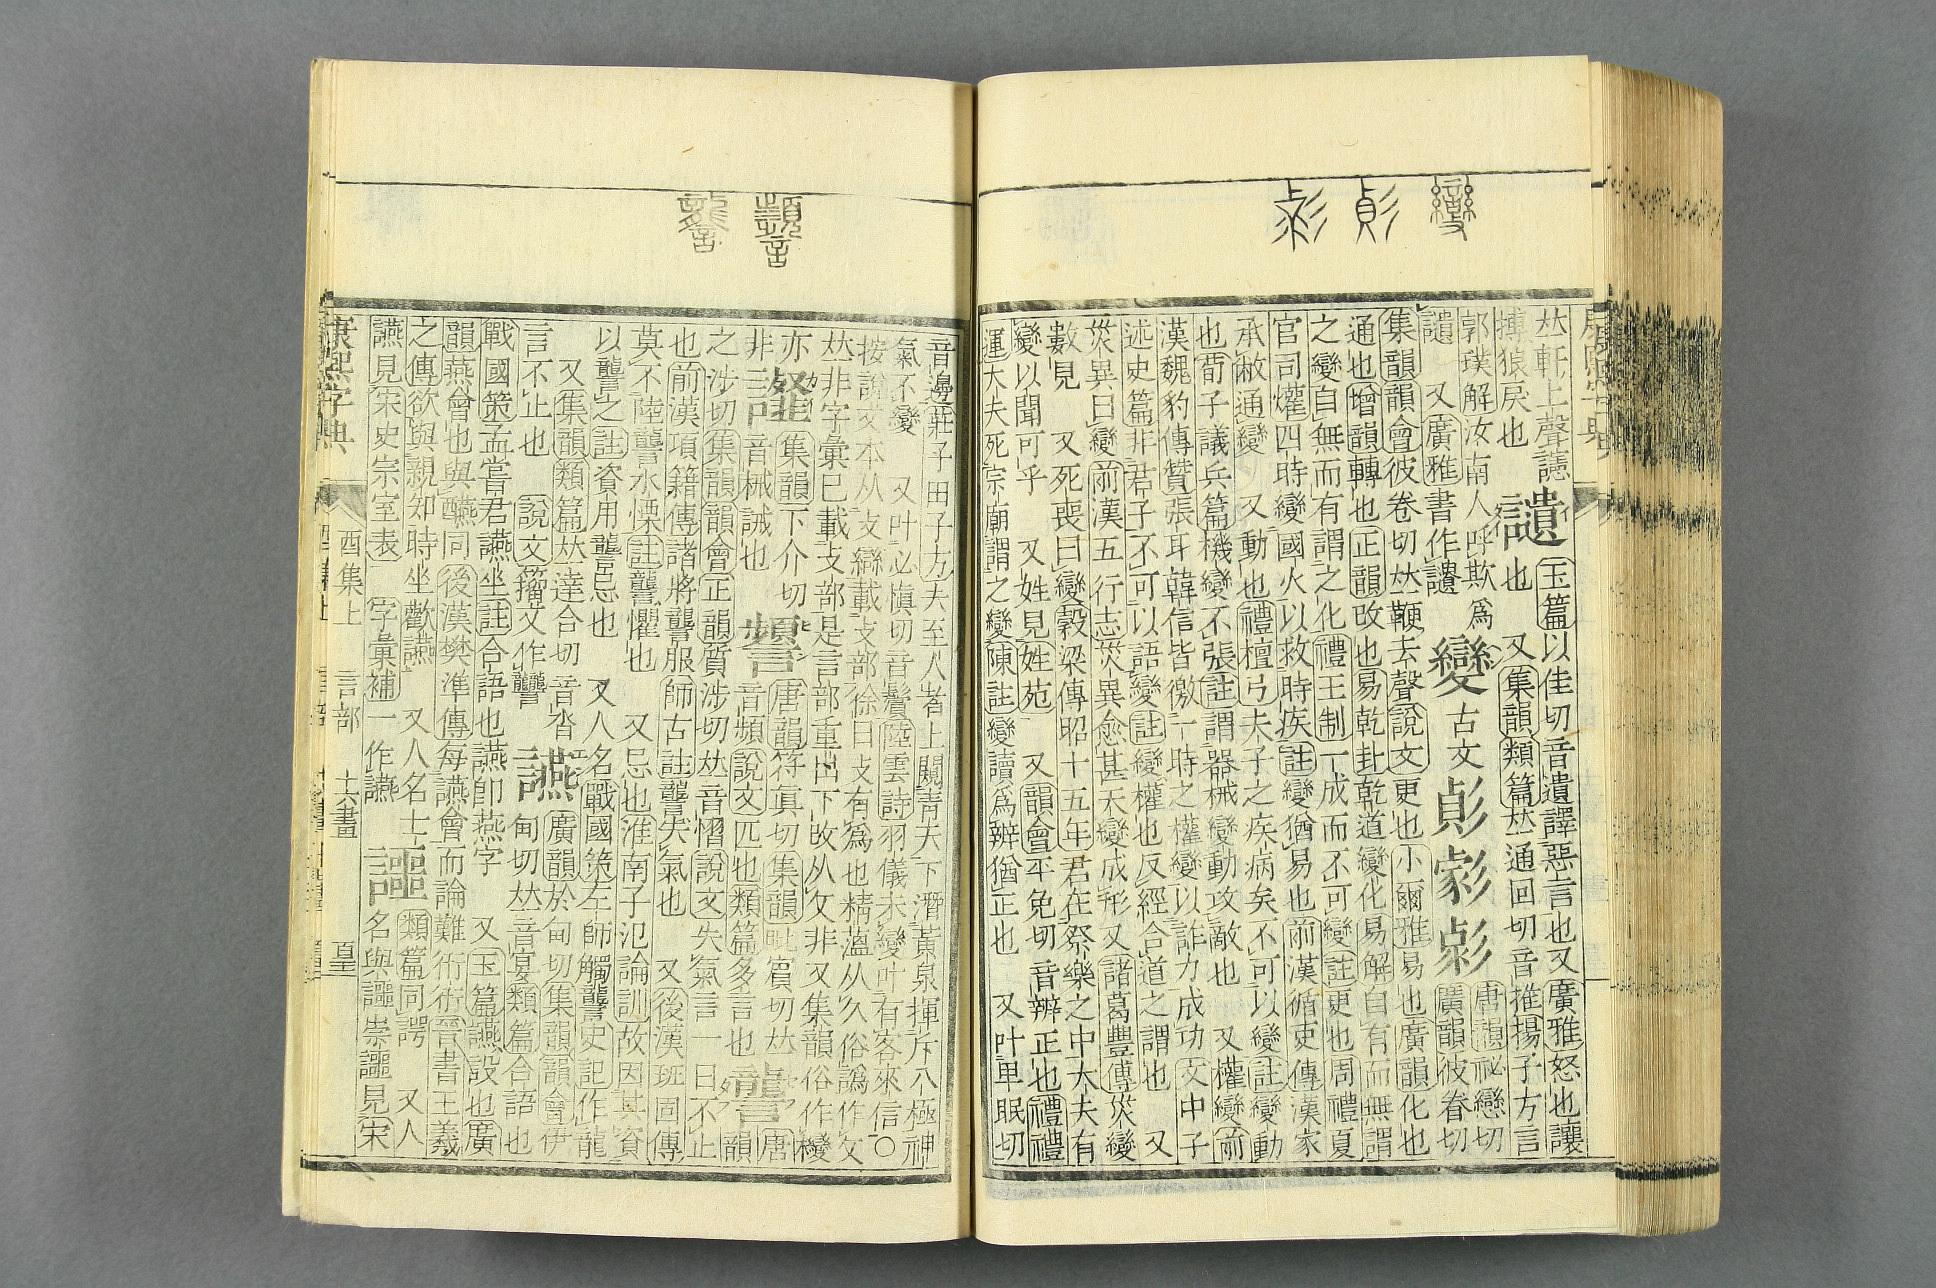 𠀤軒上聲譩
摶狼戾也
譴
玉篇以佳切音遺譯惡言也又廣雅怒也讓
也 又集韻類篇𠀤通回切音推揚子方言
郭璞解汝南人呼欺爲
譴 又廣雅書作讉
變
古文
唐韻祕戀切
廣韻彼眷切
集韻韻會彼卷切𠀤鞭去聲說文更也小爾雅易也廣韻化也
通也增韻轉也正韻改也易乾卦乾道變化易解自有而無謂
之變自無而有謂之化禮王制一成而不可變註更也周禮夏
官司爟四時變國火以救時疾註變猶易也前漢循吏傳漢家
承敝通變 又動也禮檀弓夫子之疾病矣不可以變註變動
也荀子議兵篇機變不張註謂器械變動攻敵也 又權變前
漢魏豹傳贊張耳韓信皆徼一時之權變以詐力成功文中子
述史篇非君子不可以語變註變權也反經合道之謂也 又
災異曰變前漢五行志災異愈甚天變成形又諸葛豐傳災變
數見 又死喪曰變穀梁傳昭十五年君在祭樂之中大夫有
變以聞可乎 又姓見姓苑 又韻會平免切音辨正也禮禮
運大夫死宗廟謂之變陳註變讀爲辨猶正也 又叶𤰞眠切
音邊莊子田子方夫至人者上闚靑天下潛黃泉揮斥八極神
氣不變 又叶必愼切音鬢陸雲詩羽儀未變叶有客來信○
按說文本从攴變載攴部徐曰攴有爲也精薀从久俗譌作攵
𠀤非字彙已載攴部是言部重出下改从攵非又集韻俗作䜌
亦
非
集韻下介切
音械誡也
唐韻符眞切集韻毗賔切𠀤
音頻說文匹也類篇多言也
讋
唐
韻
之涉切集韻韻會正韻質涉切𠀤音慴說文失氣言一曰不止
也前漢項籍傳諸將讋服師古註讋失氣也 又後漢班固傳
莫不陸讋水慄註讋懼也 又忌也淮南子氾論訓故因其資
以讋之註資用讋忌也 又人名戰國策左師觸讋史記作龍
又集韻類篇𠀤達合切音沓
言不止也 說文籀文作讋
讌
廣韻於甸切集韻韻會伊
甸切𠀤音宴類篇合語也
戰國策孟嘗君讌坐註合語也讌卽燕字 又玉篇讌設也廣
韻燕會也與醼同後漢樊準傳每讌會而論難衎衎晉書王羲
之傳欲與親知時坐歡讌 又人名士
讌見宋史宗室表 字彙補一作讌
類篇同諤 又人
名與讍崇讍見宋
康熙字典 酉集上 言部 十六畫